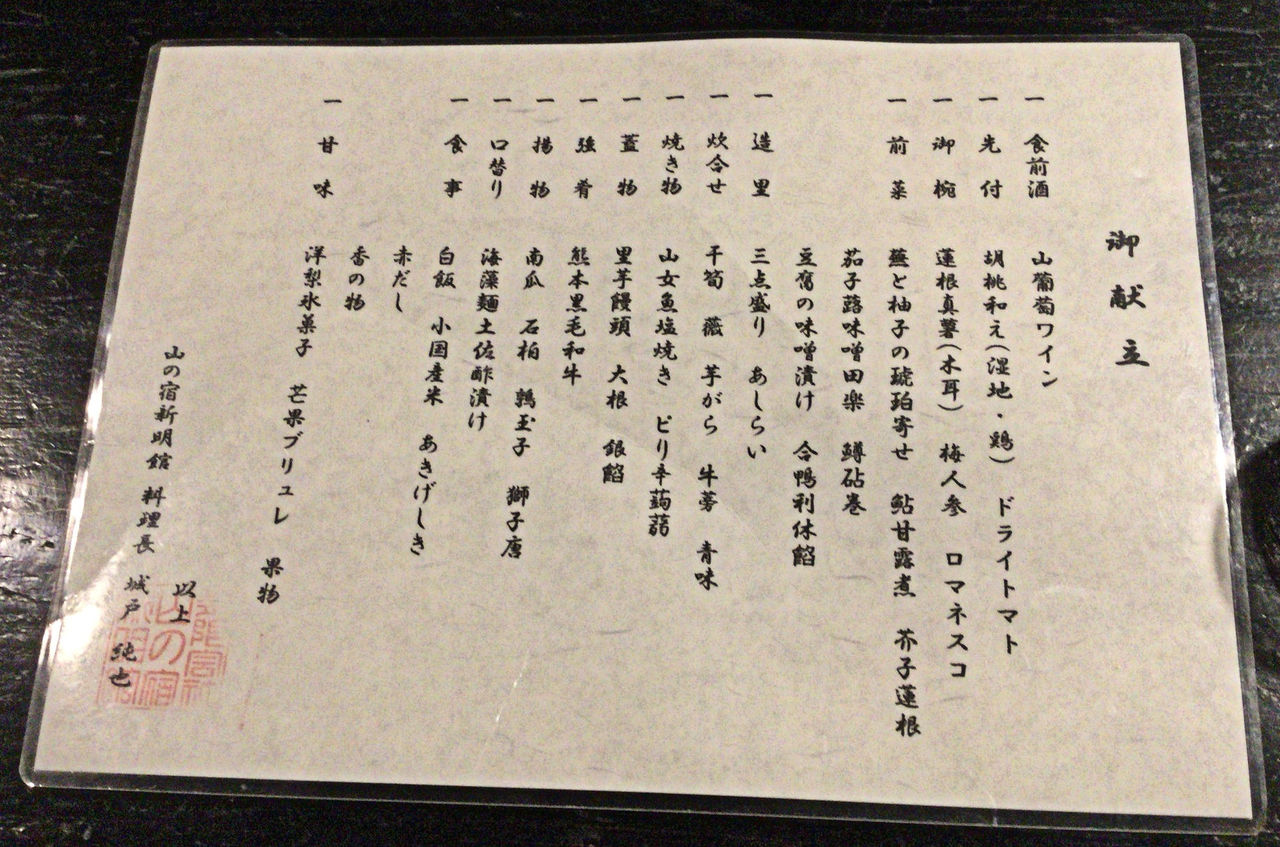 御献立
一 食前酒 山葡萄ワイン
一 先付 胡桃和え(湿地・鶏) ドライトマト
一 御椀 蓮根真薯(木耳) 梅人参 ロマネスコ
一 前菜 蕪と柚子の琥珀寄せ 鮎甘露煮 芥子蓮根
茄子蕗味噌田楽 鱒砧巻
豆腐の味噌漬け 合鴨利休餡
一 造里 三点盛り あしらい
一 炊合せ 干筍 薇 芋がら 牛蒡 青味
一 焼き物 山女魚塩焼き ピリ辛蒟蒻
一 蓋物 里芋饅頭 大根 銀餡
一 強肴 熊本黒毛和牛
一 揚物 南瓜 石柏 鶉玉子 獅子唐
一 口替り 海藻麺土佐酢漬け
一 食事 白飯 小国産米 あきげしき
赤だし
香の物
一 甘味 洋梨氷菓子 芒果ブリュレ 果物
以上
山の宿新明館 料理長 城戸 純也